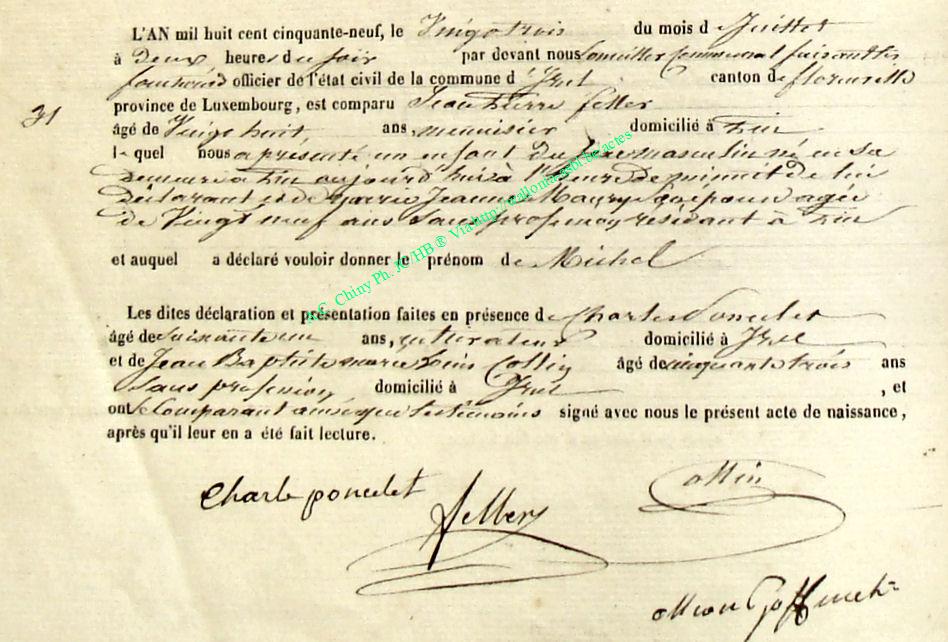 L'AN mil huit cent cinquante-neuf, le Vingt trois du mois d Juillet
à Deux heures du soir par devant nous Conseiller Communal faisant les
officier de l'état civil de la commune d' Izel canton de florenville
31
province de Luxembourg, est comparu Jean Pierre feller
âgé de Vingt huit ans, menuisier domicilié à
le quel nous a présenté un enfant Du sexe masculin né en sa
Demeure à aujourd'hui à l'heure De minuit de lui
Déclarant et de Marie Jeanne Maury son épouse agée
de Vingt neuf ans Sans profession residant à
et auquel a déclaré vouloir donner le prénom de Michel
Les dites déclaration et présentation faites en présence de Charles Poncelet
âgé de soixante un ans, cultivateur domicilié à Izel
et de Jean Baptiste marie Louis Collin âgé de cinquante trois ans
Sans profession domicilié à Izel , et
ont le Comparant ainsi que les témoins signé avec nous le présent acte de naissance,
après qu'il leur en a été fait lecture.
Charle poncelet
feller
ollin
Goffinet
Chiny Ph. JC HB ® Via http://wallonia.asbl.be.actes